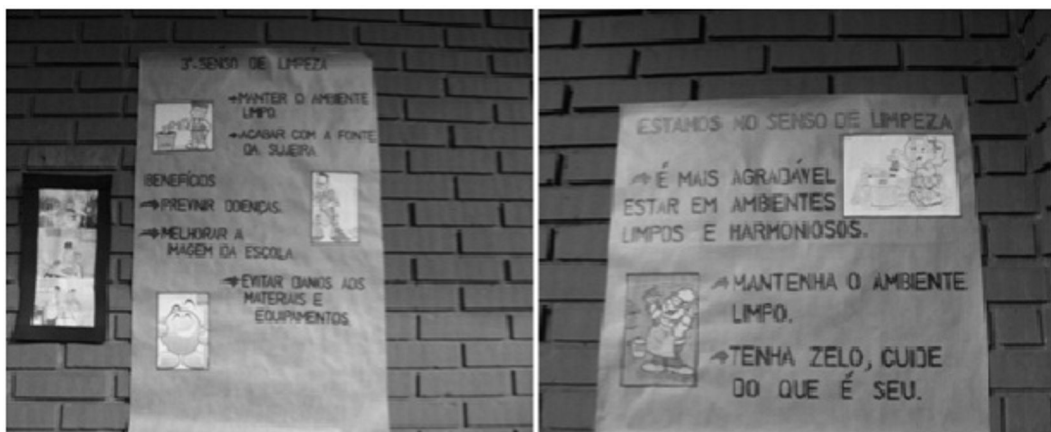 3º SENSO DE LIMPEZA
→MANTER O AMBIENTE
LIMPO.
→ACABAR COM A FONTE
DA SUJEIRA
BENEFÍCIOS
→PREVINIR DOENÇAS.
→MELHORAR A
IMAGEM DA ESCOLA
→EVITAR DANOS AOS
MATERIAIS E
EQUIPAMENTOS
ESTAMOS NO SENSO DE LIMPEZA
→É MAIS AGRADÁVEL
ESTAR EM AMBIENTES
LIMPOS E HARMONIOSOS.
→MANTENHA O AMBIENTE
LIMPO.
→TENHA ZELO, CUIDE
DO QUE É SEU.